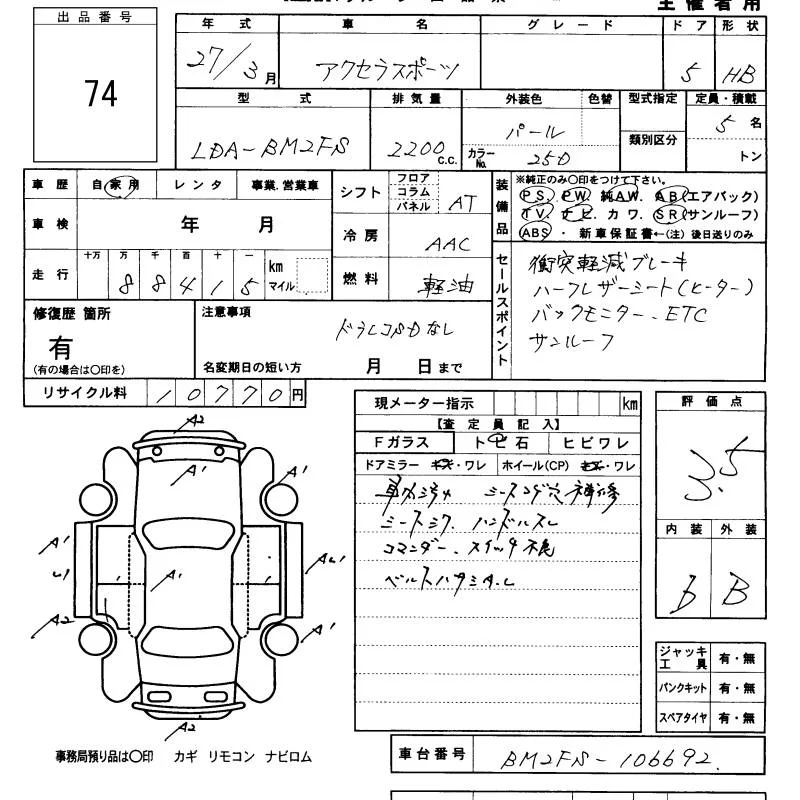 主催者用
出品番号
74
年式 車名 グレード ドア 形状
27/3月 アクセラスポーツ 5 HB
型式 排気量 外装色 色替 型式指定 定員・積載
LDA-BM2FS 2200 C.C. パール 5名
カラーNo. 25D 類別区分 トン
車歴 自家用 レンタ 事業.営業車
シフト フロア コラム パネル AT
装備品 ※純正のみ〇印をつけて下さい。
PS. PW. 純AW. AB(エアバック)
TV. ナビ. カワ. SR(サンルーフ)
ABS・新車保証書←(注)後日送りのみ
車検 年 月
冷房 AAC
走行 十万 万 千 百 十 一
88415 km マイル
燃料 軽油
セールスポイント
衝突軽減ブレーキ
ハーフレザーシート(ヒーター)
バックモニター.ETC
サンルーフ
修復歴 箇所
有
(有の場合は〇印を)
注意事項
ドラレコSDなし
名変期日の短い方 月 日まで
リサイクル料 10770円
現メーター指示 km
【査定員記入】
Fガラス トビ石 ヒビワレ
ドアミラー キズ・ワレ ホイール(CP) キズ・ワレ
車内 シートコゲ穴補修
シートシワ. ハンドルスレ
コマンダー.スイッチ不良
評価点
3.5
内装 外装
D B
A2
A'
A'
A'
A'
A'
A2
A'
A2
ジャッキ工具 有・無
パンクキット 有・無
スペアタイヤ 有・無
事務局預り品は〇印 カギ リモコン ナビロム
車台番号 BM2FS-106692.